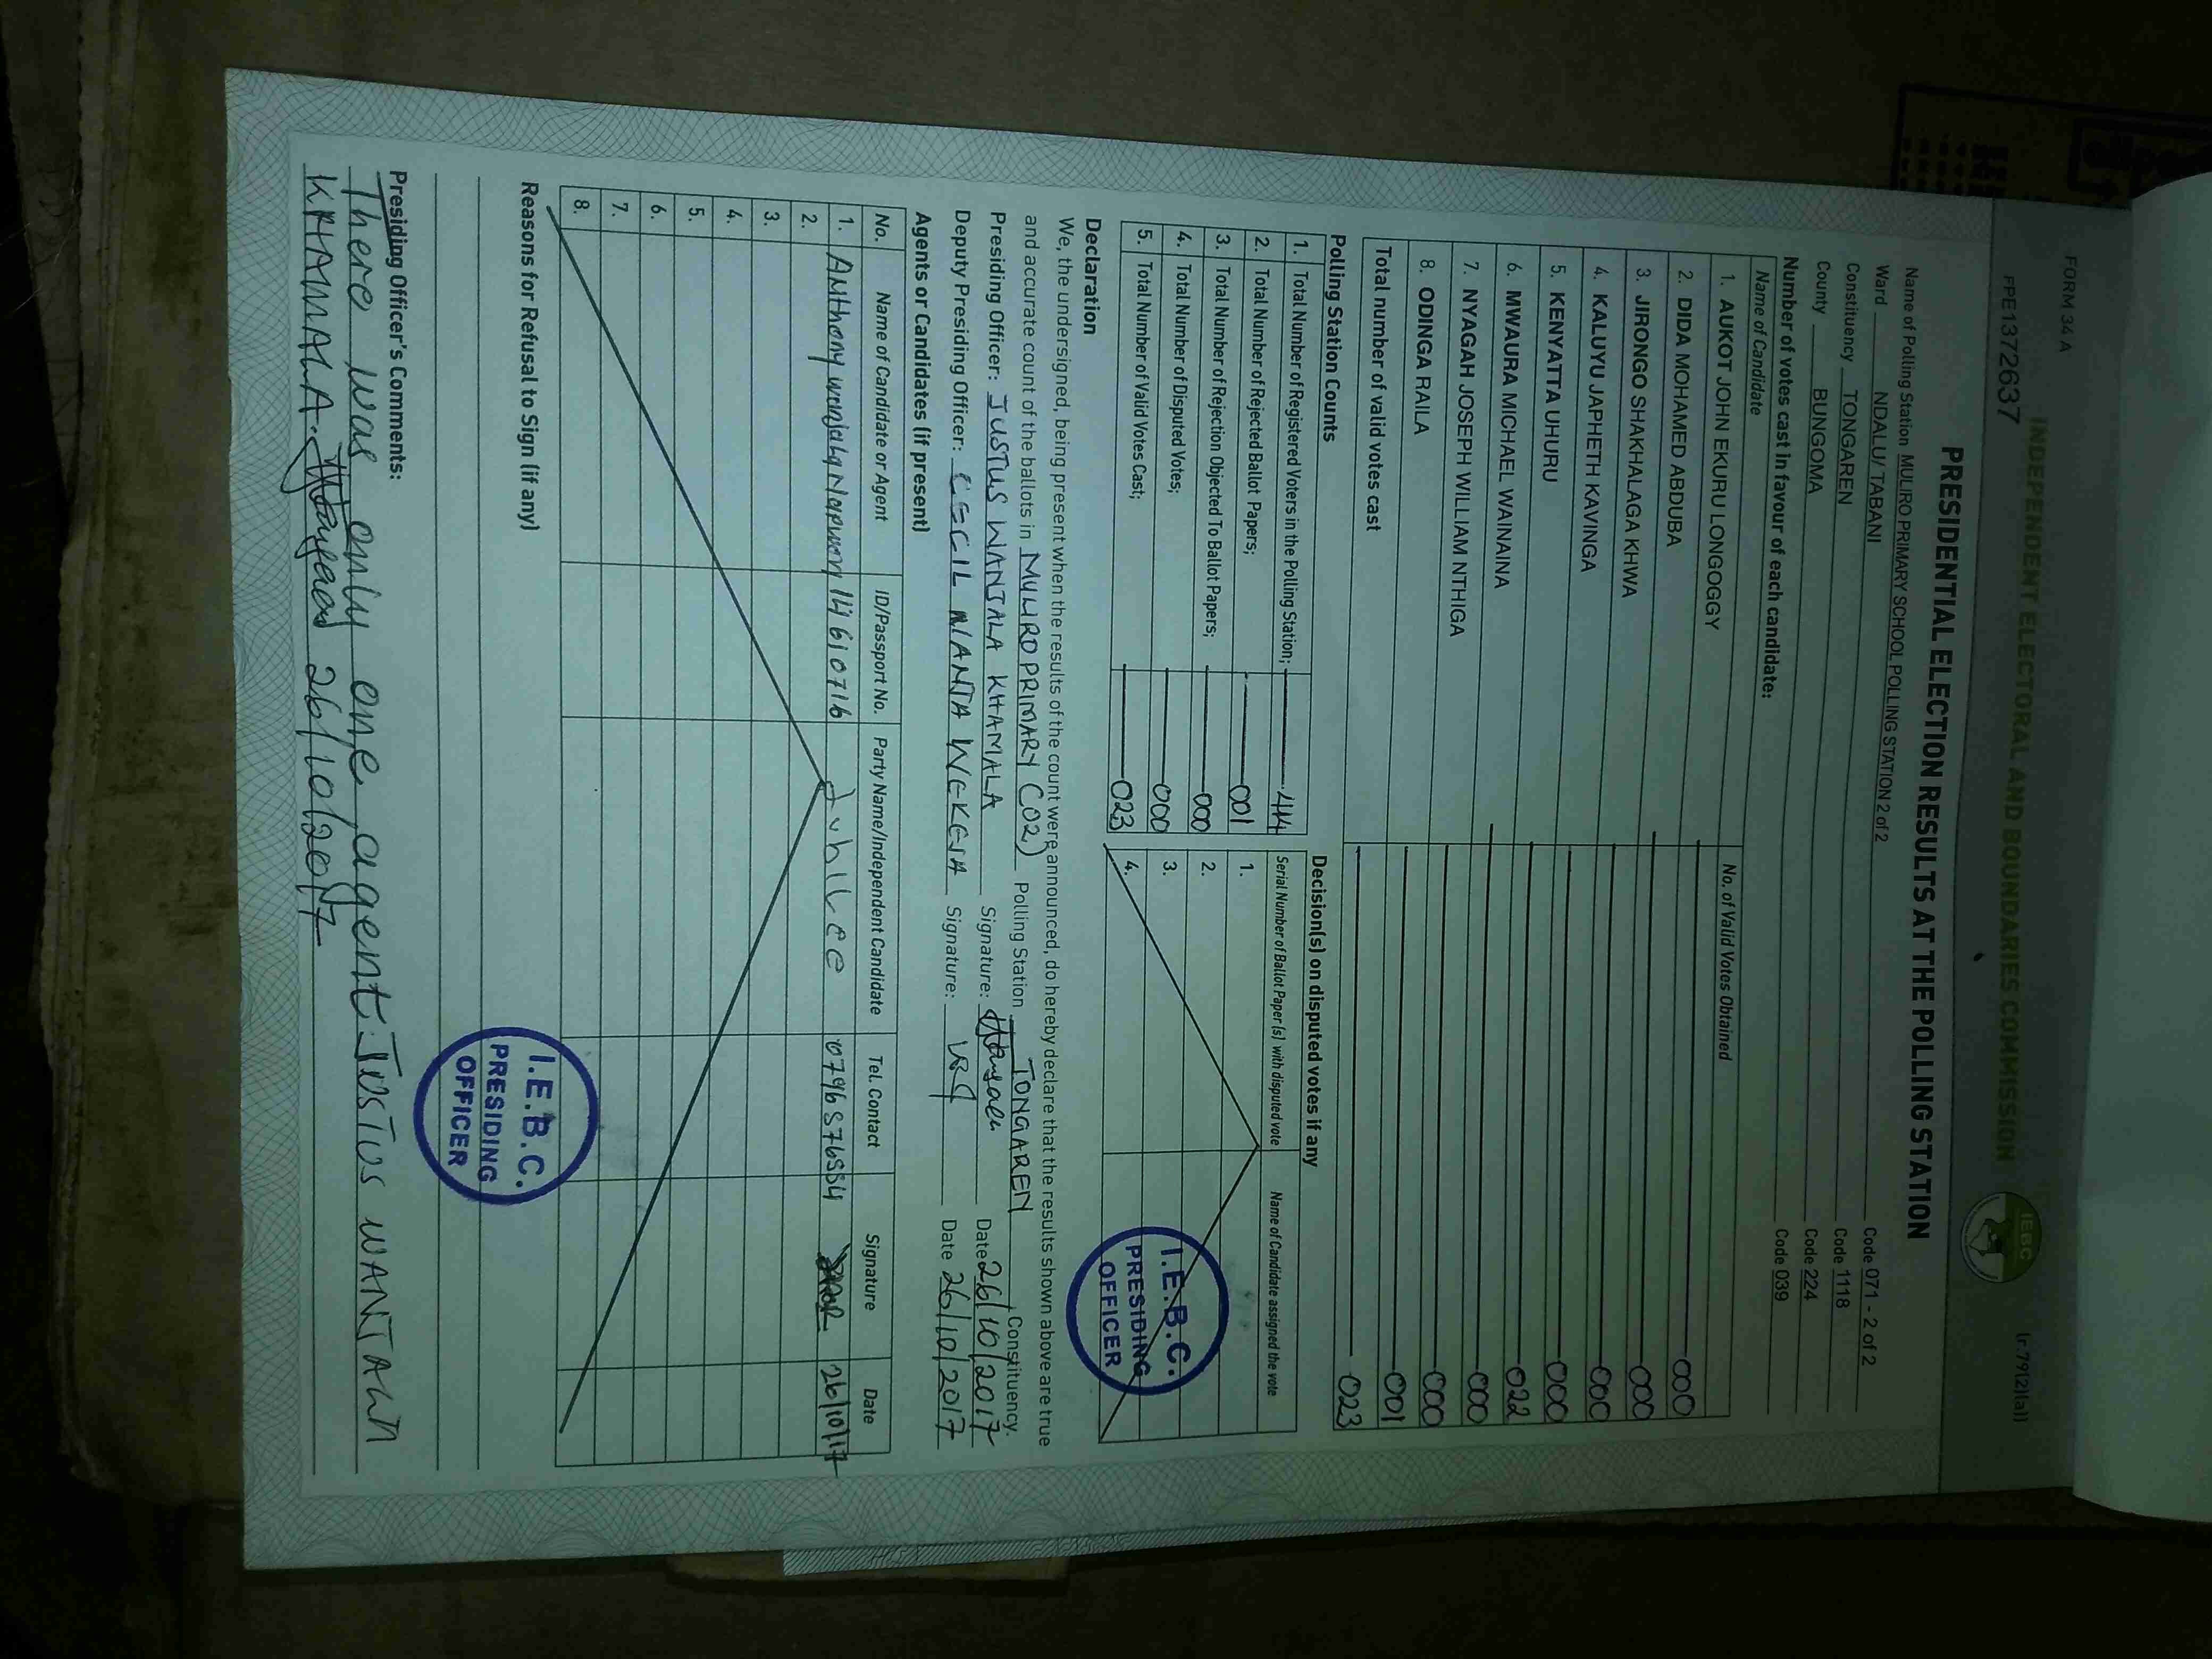 FORM 34 A
(r.79(2)(a))
INDEPENDENT ELECTORAL AND BOUNDARIES COMMISSION
IEBC
FPE1372637
PRESIDENTIAL ELECTION RESULTS AT THE POLLING STATION
Name of Polling Station MULIRO PRIMARY SCHOOL POLLING STATION 2 of 2 Code 071 - 2 of 2
Ward NDALU/ TABANI Code 1118
Constituency TONGAREN Code 224
County BUNGOMA Code 039
Number of votes cast in favour of each candidate:
Name of Candidate No. of Valid Votes Obtained
1. AUKOT JOHN EKURU LONGOGGY 000
2. DIDA MOHAMED ABDUBA 000
3. JIRONGO SHAKHALAGA KHWA 000
4. KALUYU JAPHETH KAVINGA 000
5. KENYATTA UHURU 022
6. MWAURA MICHAEL WAINAINA 000
7. NYAGAH JOSEPH WILLIAM NTHIGA 000
8. ODINGA RAILA 001
Total number of valid votes cast 023
Polling Station Counts
1. Total Number of Registered Voters in the Polling Station; 414
2. Total Number of Rejected Ballot Papers; 001
3. Total Number of Rejection Objected To Ballot Papers; 000
4. Total Number of Disputed Votes; 000
5. Total Number of Valid Votes Cast; 023
Decision(s) on disputed votes if any
Serial Number of Ballot Paper (s) with disputed vote Name of Candidate assigned the vote
1.
2.
3.
4.
I.E.B.C.
PRESIDING
OFFICER
Declaration
We, the undersigned, being present when the results of the count were announced, do hereby declare that the results shown above are true
and accurate count of the ballots in MULIRO PRIMARY (02) Polling Station TONGAREN Constituency.
Presiding Officer: JUSTUS WANJALA KHAMALA Signature: Date 26/10/2017
Deputy Presiding Officer: CECIL NANJA WEKESA Signature: Date 26/10/2017
Agents or Candidates (if present)
No. Name of Candidate or Agent ID/Passport No. Party Name/Independent Candidate Tel. Contact Signature Date
1. Anthony wanjala 14610716 Jubilee 0796576554 26/10/17
2.
3.
4.
5.
6.
7.
8.
Reasons for Refusal to Sign (if any)
I.E.B.C.
PRESIDING
OFFICER
Presiding Officer's Comments:
There was only one agent. JUSTUS WANJALA
KHAMALA. 26/10/2017